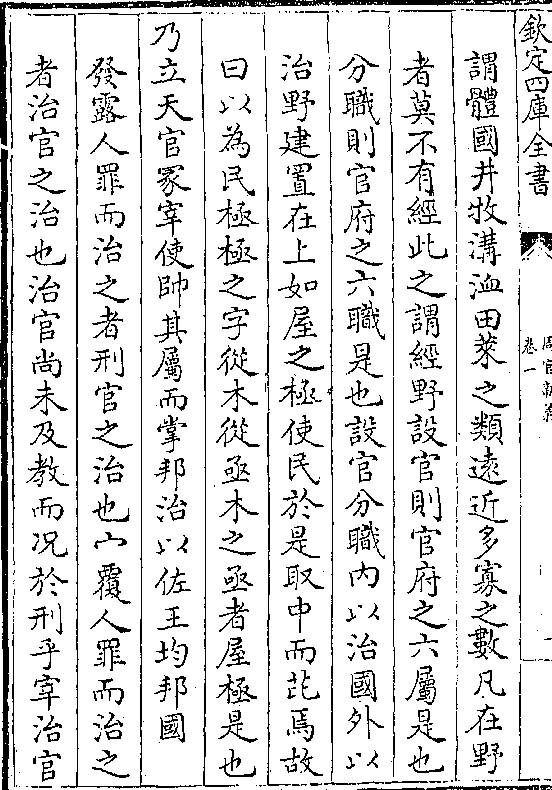 欽定四庫全書
卷一
謂體國井牧溝洫田萊之類遠近多寡之數凡在野
者莫不有經此之謂經野設官則官府之六屬是也
分職則官府之六職是也設官分職内以治國外以
治野建置在上如屋之極使民於是取中而芘焉故
曰以為民極極之字從木從亟木之亟者屋極是也
乃立天官冢宰使帥其屬而掌邦治以佐王均邦國
發露人罪而治之者刑官之治也宀覆人罪而治之
者治官之治也治官尚未及教而况於刑乎宰治官